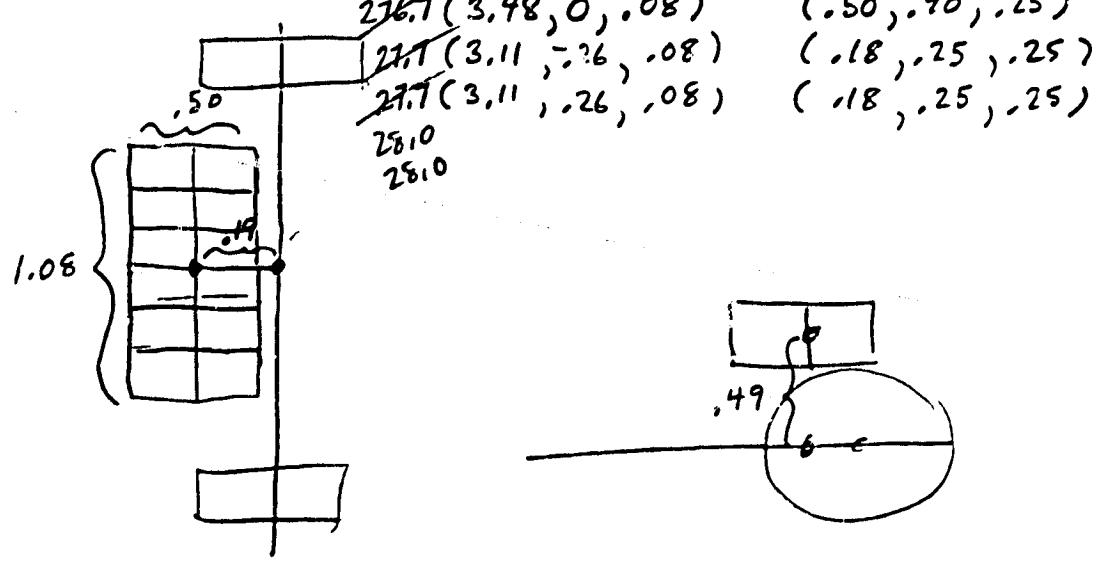 276.7 (3.48, 0, .08) (.50, .90, .25)
27.7 (3.11, -.26, .08) (.18, .25, .25)
27.7 (3.11, .26, .08) (.18, .25, .25)
28.0
28.0
.50
.19
1.08
.49